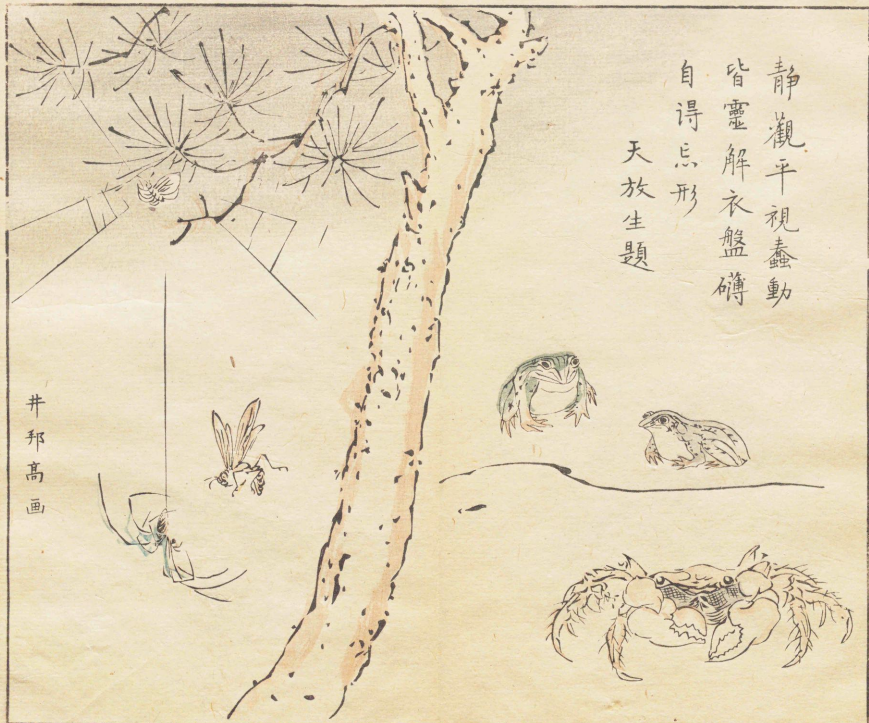 静觀平視蠢動
皆靈解衣盤礴
自得忘形
天放生題
井邦高画